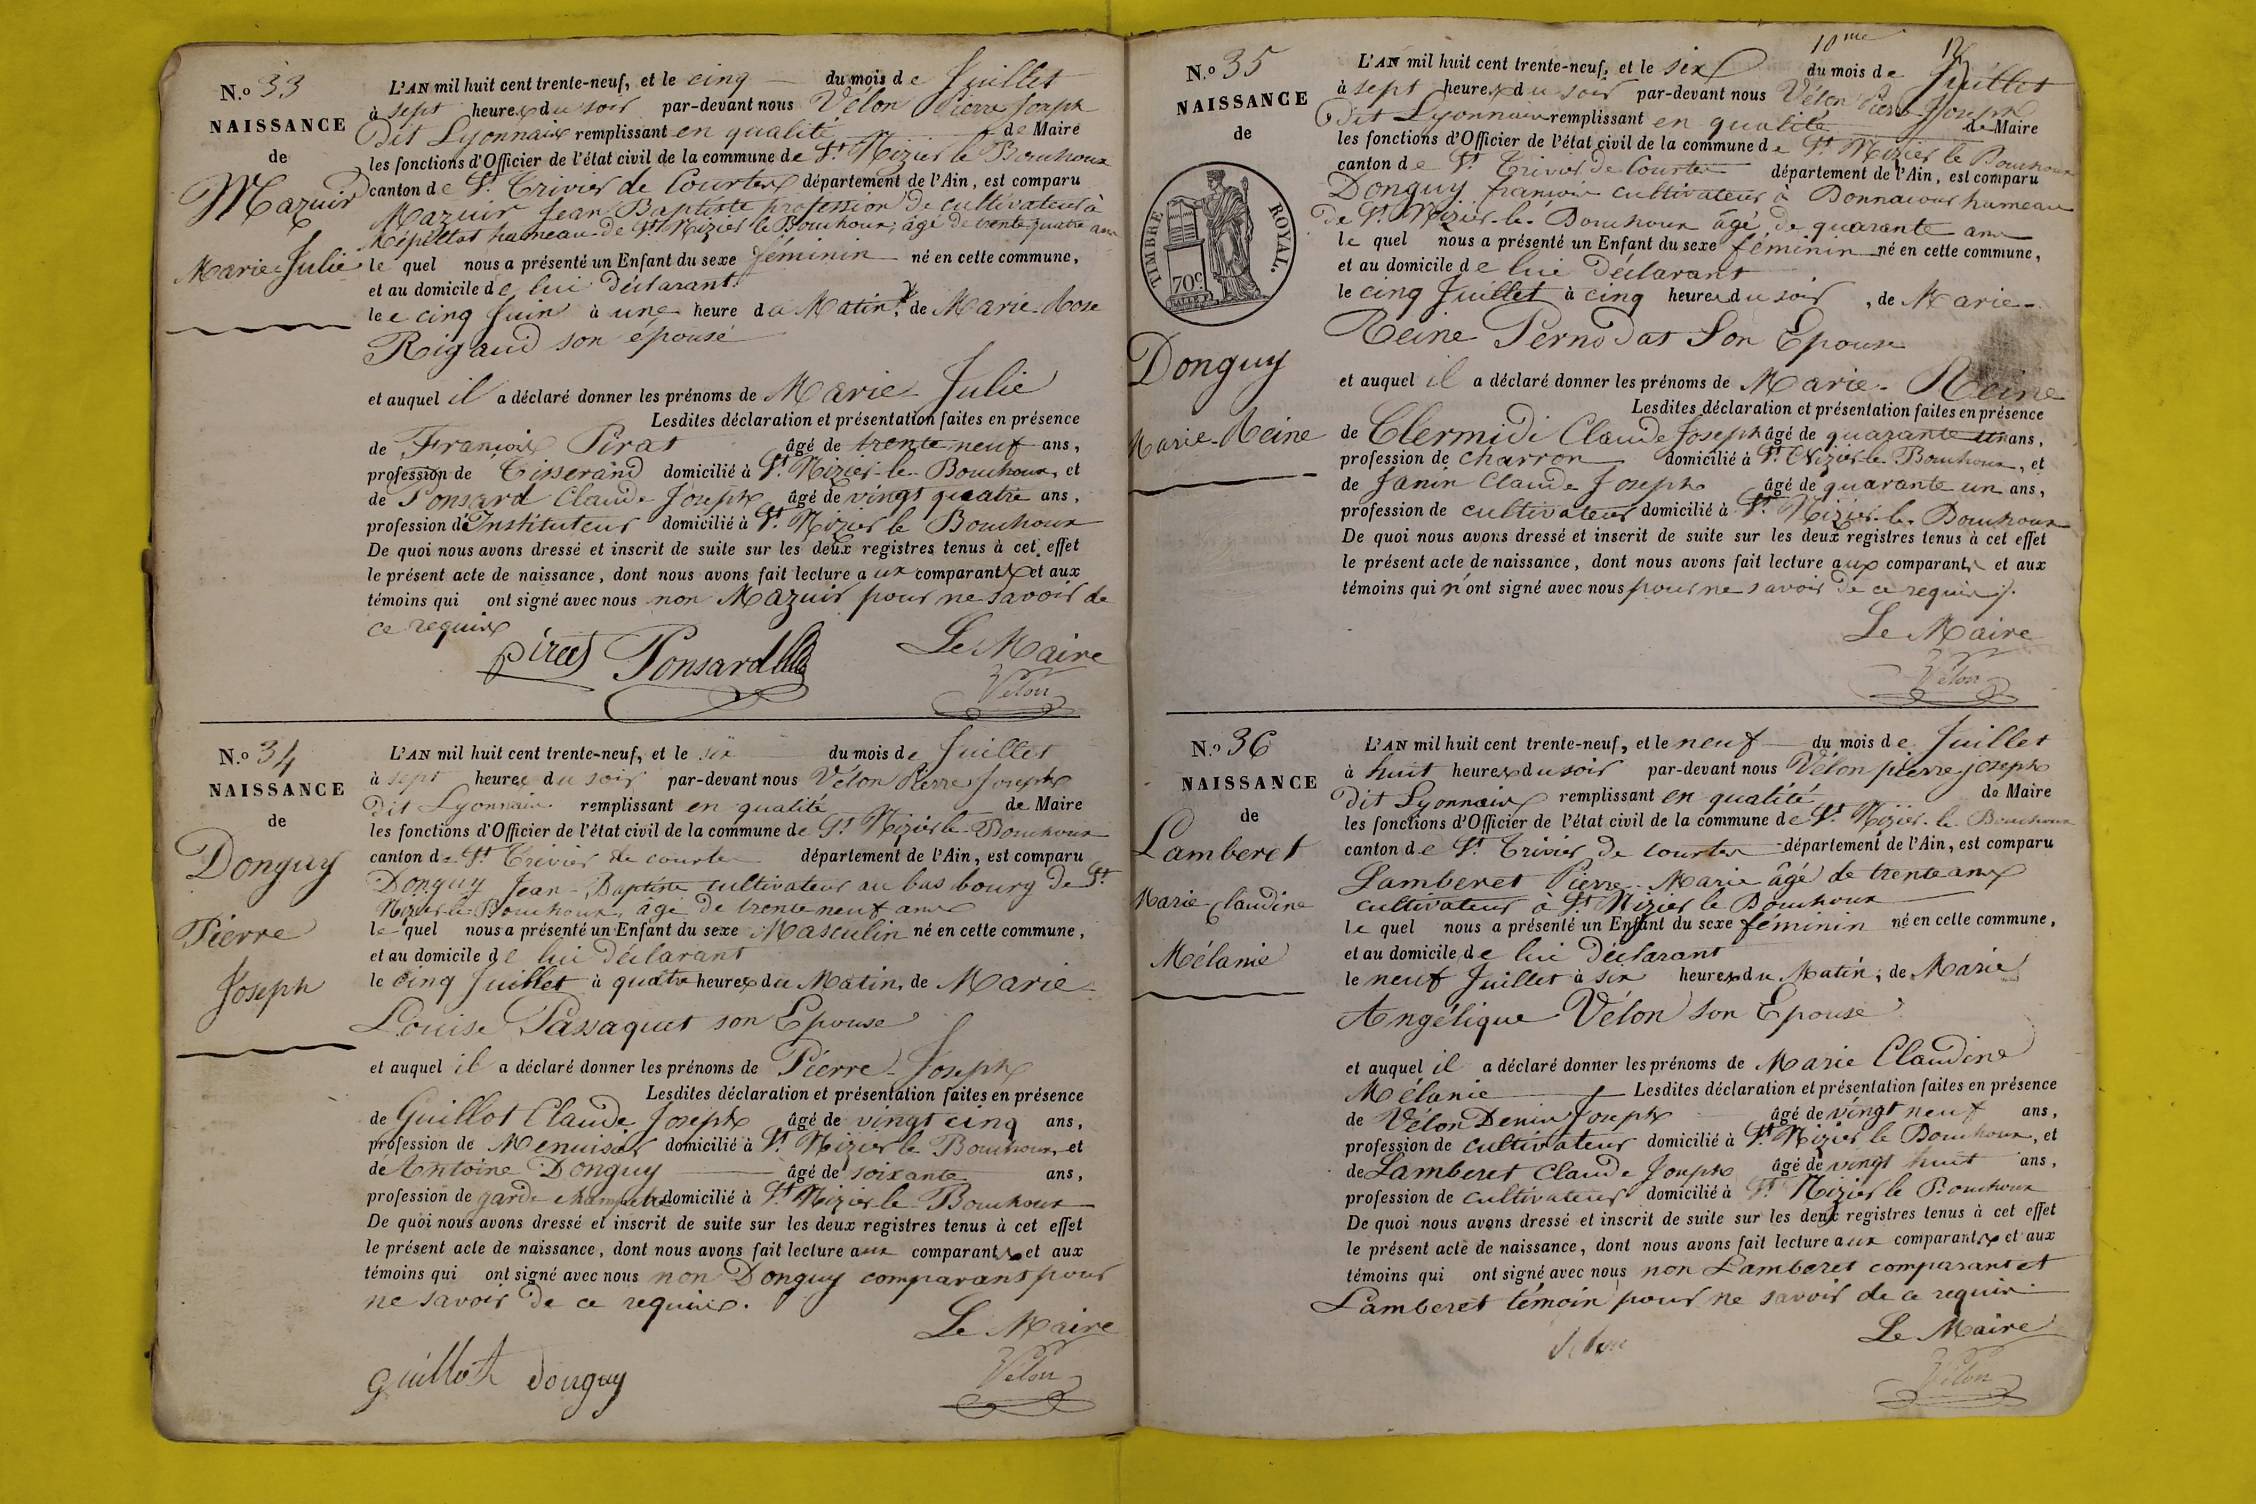 N.o 33
NAISSANCE
de
Mazuir
Marie Julie
L'AN mil huit cent trente-neuf, et le cinq du mois de Juillet
à sept heures du soir par-devant nous Vélon Pierre Joseph
Dit Lyonnais remplissant en qualité de Maire
les fonctions d'Officier de l'état civil de la commune de St Nizier le Bouchoux
canton de St Trivier de Courtes département de l'Ain, est comparu
Mazuir Jean Baptiste profession de cultivateur à
hameau de St Nizier le Bouchoux, âgé de trente quatre ans
le quel nous a présenté un Enfant du sexe féminin né en cette commune,
et au domicile de lui déclarant
le cinq Juin à une heure du Matin, de Marie Rose
Rigaud son épouse
et auquel il a déclaré donner les prénoms de Marie Julie
Lesdites déclaration et présentation faites en présence
de François Pirat âgé de trente neuf ans,
profession de Tisserand domicilié à St Nizier le Bouchoux, et
de Ponsard Claude Joseph âgé de vingt quatre ans,
profession d'Instituteur domicilié à St Nizier le Bouchoux
De quoi nous avons dressé et inscrit de suite sur les deux registres tenus à cet effet
le présent acte de naissance, dont nous avons fait lecture aux comparants et aux
témoins qui ont signé avec nous non Mazuir pour ne savoir de
ce requis
Pirat Ponsard Le Maire
Vélon
N.o 34
NAISSANCE
de
Donguy
Pierre
Joseph
L'AN mil huit cent trente-neuf, et le six du mois de Juillet
à sept heures du soir par-devant nous Vélon Pierre Joseph
Dit Lyonnais remplissant en qualité de Maire
les fonctions d'Officier de l'état civil de la commune de St Nizier le Bouchoux
canton de St Trivier de courtes département de l'Ain, est comparu
Donguy Jean-Baptiste cultivateur au bas bourg de St
Nizier le Bouchoux, âgé de trente neuf ans
le quel nous a présenté un Enfant du sexe Masculin né en cette commune,
et au domicile de lui déclarant
le cinq Juillet à quatre heures du Matin, de Marie
Louise Passaquet son Epouse
et auquel il a déclaré donner les prénoms de Pierre Joseph
Lesdites déclaration et présentation faites en présence
de Guillot Claude Joseph âgé de vingt cinq ans,
profession de Menuisier domicilié à St Nizier le Bouchoux, et
de Antoine Donguy âgé de soixante ans,
profession de garde champetre domicilié à St Nizier le Bouchoux
De quoi nous avons dressé et inscrit de suite sur les deux registres tenus à cet effet
le présent acte de naissance, dont nous avons fait lecture aux comparants et aux
témoins qui ont signé avec nous non Donguy comparant pour
ne savoir de ce requis.
Le Maire
Guillot donguy Vélon
10me 12
N.o 35
NAISSANCE
de
TIMBRE ROYAL.
70c.
Donguy
Marie-Reine
L'AN mil huit cent trente-neuf, et le six du mois de Juillet
à sept heures du soir par-devant nous Vélon Pierre Joseph
Dit Lyonnais remplissant en qualité de Maire
les fonctions d'Officier de l'état civil de la commune de St Nizier le Bouchoux
canton de St Trivier de Courtes département de l'Ain, est comparu
Donguy françois cultivateur à Donnacour hameau
de St Nizier-le-Bouchoux âgé de quarante ans
le quel nous a présenté un Enfant du sexe féminin né en cette commune,
et au domicile de lui déclarant
le cinq Juillet à cinq heures du soir, de Marie-
Reine Pernodat Son Epouse
et auquel il a déclaré donner les prénoms de Marie-Reine
Lesdites déclaration et présentation faites en présence
de Clermidi Claude Joseph âgé de quarante un ans,
profession de charron domicilié à St Nizier le Bouchoux, et
de Janin Claude Joseph âgé de quarante un ans,
profession de cultivateur domicilié à St Nizier-le-Bouchoux
De quoi nous avons dressé et inscrit de suite sur les deux registres tenus à cet effet
le présent acte de naissance, dont nous avons fait lecture aux comparants et aux
témoins qui n'ont signé avec nous pour ne savoir de ce requis.
Le Maire
Vélon
N.o 36
NAISSANCE
de
Lamberet
Marie Claudine
Mélanie
L'AN mil huit cent trente-neuf, et le neuf du mois de Juillet
à huit heures du soir par-devant nous Vélon pierre joseph
Dit Lyonnais remplissant en qualité de Maire
les fonctions d'Officier de l'état civil de la commune de St Nizier-le-Bouchoux
canton de St Trivier de courtes département de l'Ain, est comparu
Lamberet Pierre-Marie âgé de trente ans
cultivateur à St Nizier le Bouchoux
le quel nous a présenté un Enfant du sexe féminin né en cette commune,
et au domicile de lui déclarant
le neuf Juillet à six heures du Matin, de Marie
Angélique Vélon son Epouse
et auquel il a déclaré donner les prénoms de Marie Claudine
Mélanie Lesdites déclaration et présentation faites en présence
de Vélon Denis Joseph âgé de vingt neuf ans,
profession de cultivateur domicilié à St Nizier le Bouchoux, et
de Lamberet Claude Joseph âgé de vingt huit ans,
profession de cultivateur domicilié à St Nizier le Bouchoux
De quoi nous avons dressé et inscrit de suite sur les deux registres tenus à cet effet
le présent acte de naissance, dont nous avons fait lecture aux comparants et aux
témoins qui ont signé avec nous non Lamberet comparant et
Lamberet témoin pour ne savoir de ce requis
Le Maire
Vélon